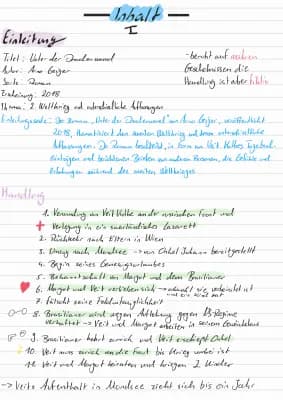 Inhalt
I
Einleitung
Titel: Unter der Drachenwand
Autor: Arno Geiger
Seite: Roman
Erscheinung: 2018
Thema: 2. Weltkrieg und unterschiedliche Auffassungen
- beruht auf wahren
Geschehnissen die
Handlung ist aber fiktiv
Einleitungssatz: Der Roman „Unter der Drachenwand" von Arno Geiger, veröffentlicht
2018, thematisiert den zweiten Weltkrieg und dessen unterschiedliche
Auffassungen. Der Roman beschreibt, in Form von Veit Kolbes Tagebuch-
einträgen und Briefen von anderen Personen, die Gefühle und
Erfahrungen während des zweiten Weltkrieges.
Handlung
1. Verwundung an Veit Kolbe an der russischen Front und
Verlegung in ein saarländisches Lazarett
2. Rückkehr nach Eltern in Wien
3. Umzug nach Mondsee → von Onkel Johann bereitgestellt
4. Beginn seines Genesungsurlaubes
5. Bekanntschaft an Margot und dem Brasilianer
6. Margot und Veit verlieben sich → obwohl sie verheiratet ist
7. fälscht seine Feldtauglichkeit
8. Brasilianer wird wegen Auflehnung gegen NS-Regime
verhaftet → Veit und Margot arbeiten in seinem Gewächshaus
9. Brasilianer kehrt zurück und Veit erschießt Onkel
10. Veit muss zurück an die Front bis Krieg vorbei ist
11. Veit und Margot heiraten und kriegen 2 Kinder
→ Veits Aufenthalt in Mondsee zieht sich bis ein Jahr